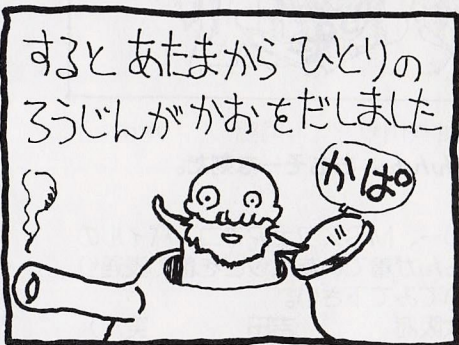 すると あたまから ひとりの
ろうじんが かお をだしました
かぱ。